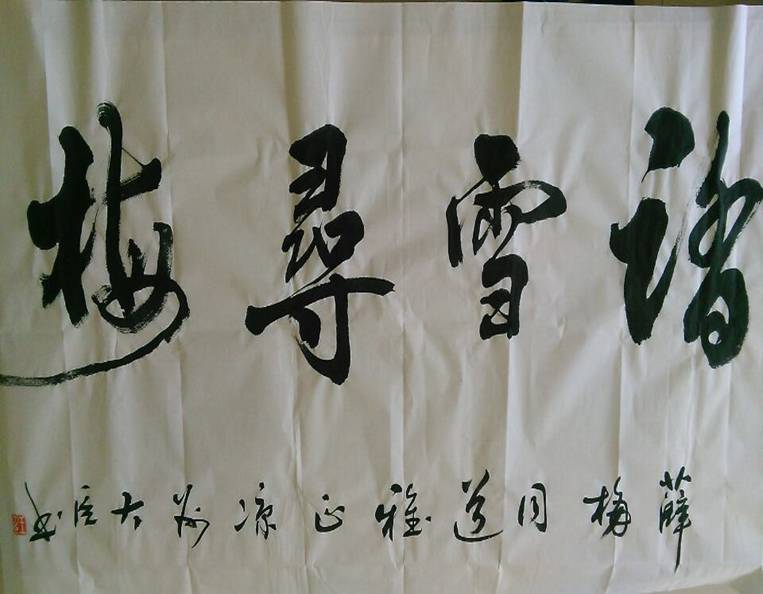 踏雪尋梅
薛梅同道雅正凉州大臣书